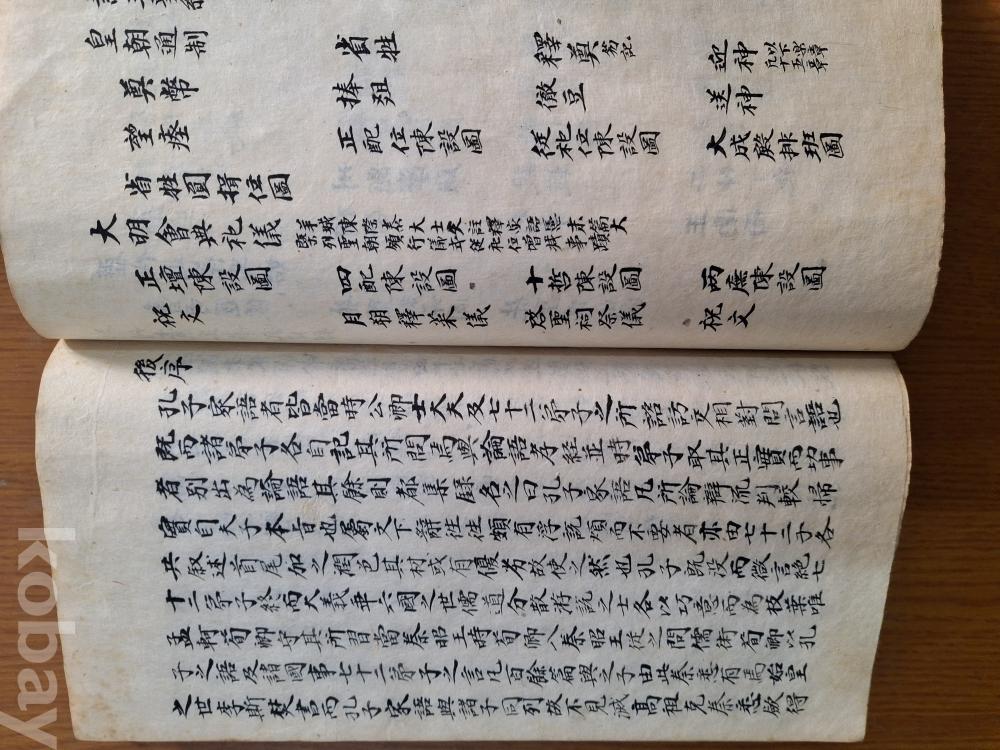 皇朝通制 省牲 釋奠 迎神 以下樂章凡十五章
奠幣 捧俎 徹豆 送神
望瘞 正配位陳設圖 從祀位陳設圖 大成殿排班圖
省牲圓揖位圖
大明會典祀儀
正壇陳設圖 四配陳設圖 十哲陳設圖 兩廡陳設圖
祝文 月朔釋菜儀 啓聖祠祭儀 祝文
後序
孔子家語者皆當時公卿士大夫及七十二弟子之所諮訪交相對問言語也
既而諸弟子各自記其所問焉與論語孝經並時弟子取其正實而切事
者別出為論語其餘則都集録名之曰孔子家語凡所論辯流判較歸
實自夫子本旨也屬文下辭往往頗有浮說煩而不要者亦由七十二子各
共叙述首尾加之潤色其材或有優劣故使之然也孔子既没而微言絶七
十二弟子終而大義乖六國之世儒道分散游說之士各以巧意而為枝葉唯
孟軻荀卿守其所習當秦昭王時荀卿入秦昭王從之問儒術荀卿以孔
子之語及諸國事七十二弟子之言凡百餘篇與之子由此秦悉有焉始皇
之世李斯焚書而孔子家語與諸子同列故不見滅高祖克秦悉斂得
kobay